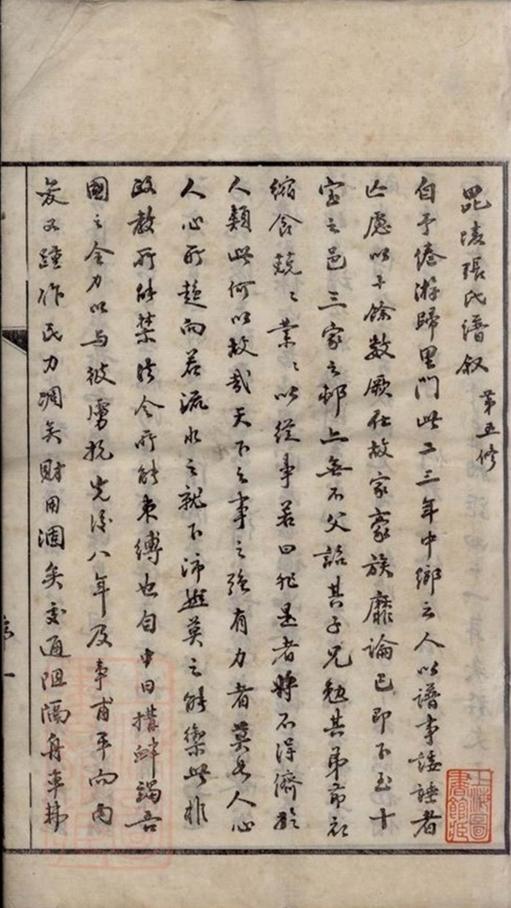 毘陵張氏譜敘 第五修
自予倦游歸里門此二三年中鄉之人以譜事諉諈者
亡慮以十餘數厥在故家豪族靡論已即下至十
室之邑三家之邨上無不父詔其子兄勉其弟節衣
縮食兢〻業〻以從事若曰非是者將不得儕於
人類此何以故哉天下之事之強有力者莫如人心
人心所趨向若流水之就下沛然莫之能禦此非
政教所能禁法令所能束縛也自中日搆衅竭吾
國之全力以與彼虜抗先後八年及事甫平而內
爰又踵作民力凋矣財用涸矣交通阻隔舟車
序 一
上海圖書館藏